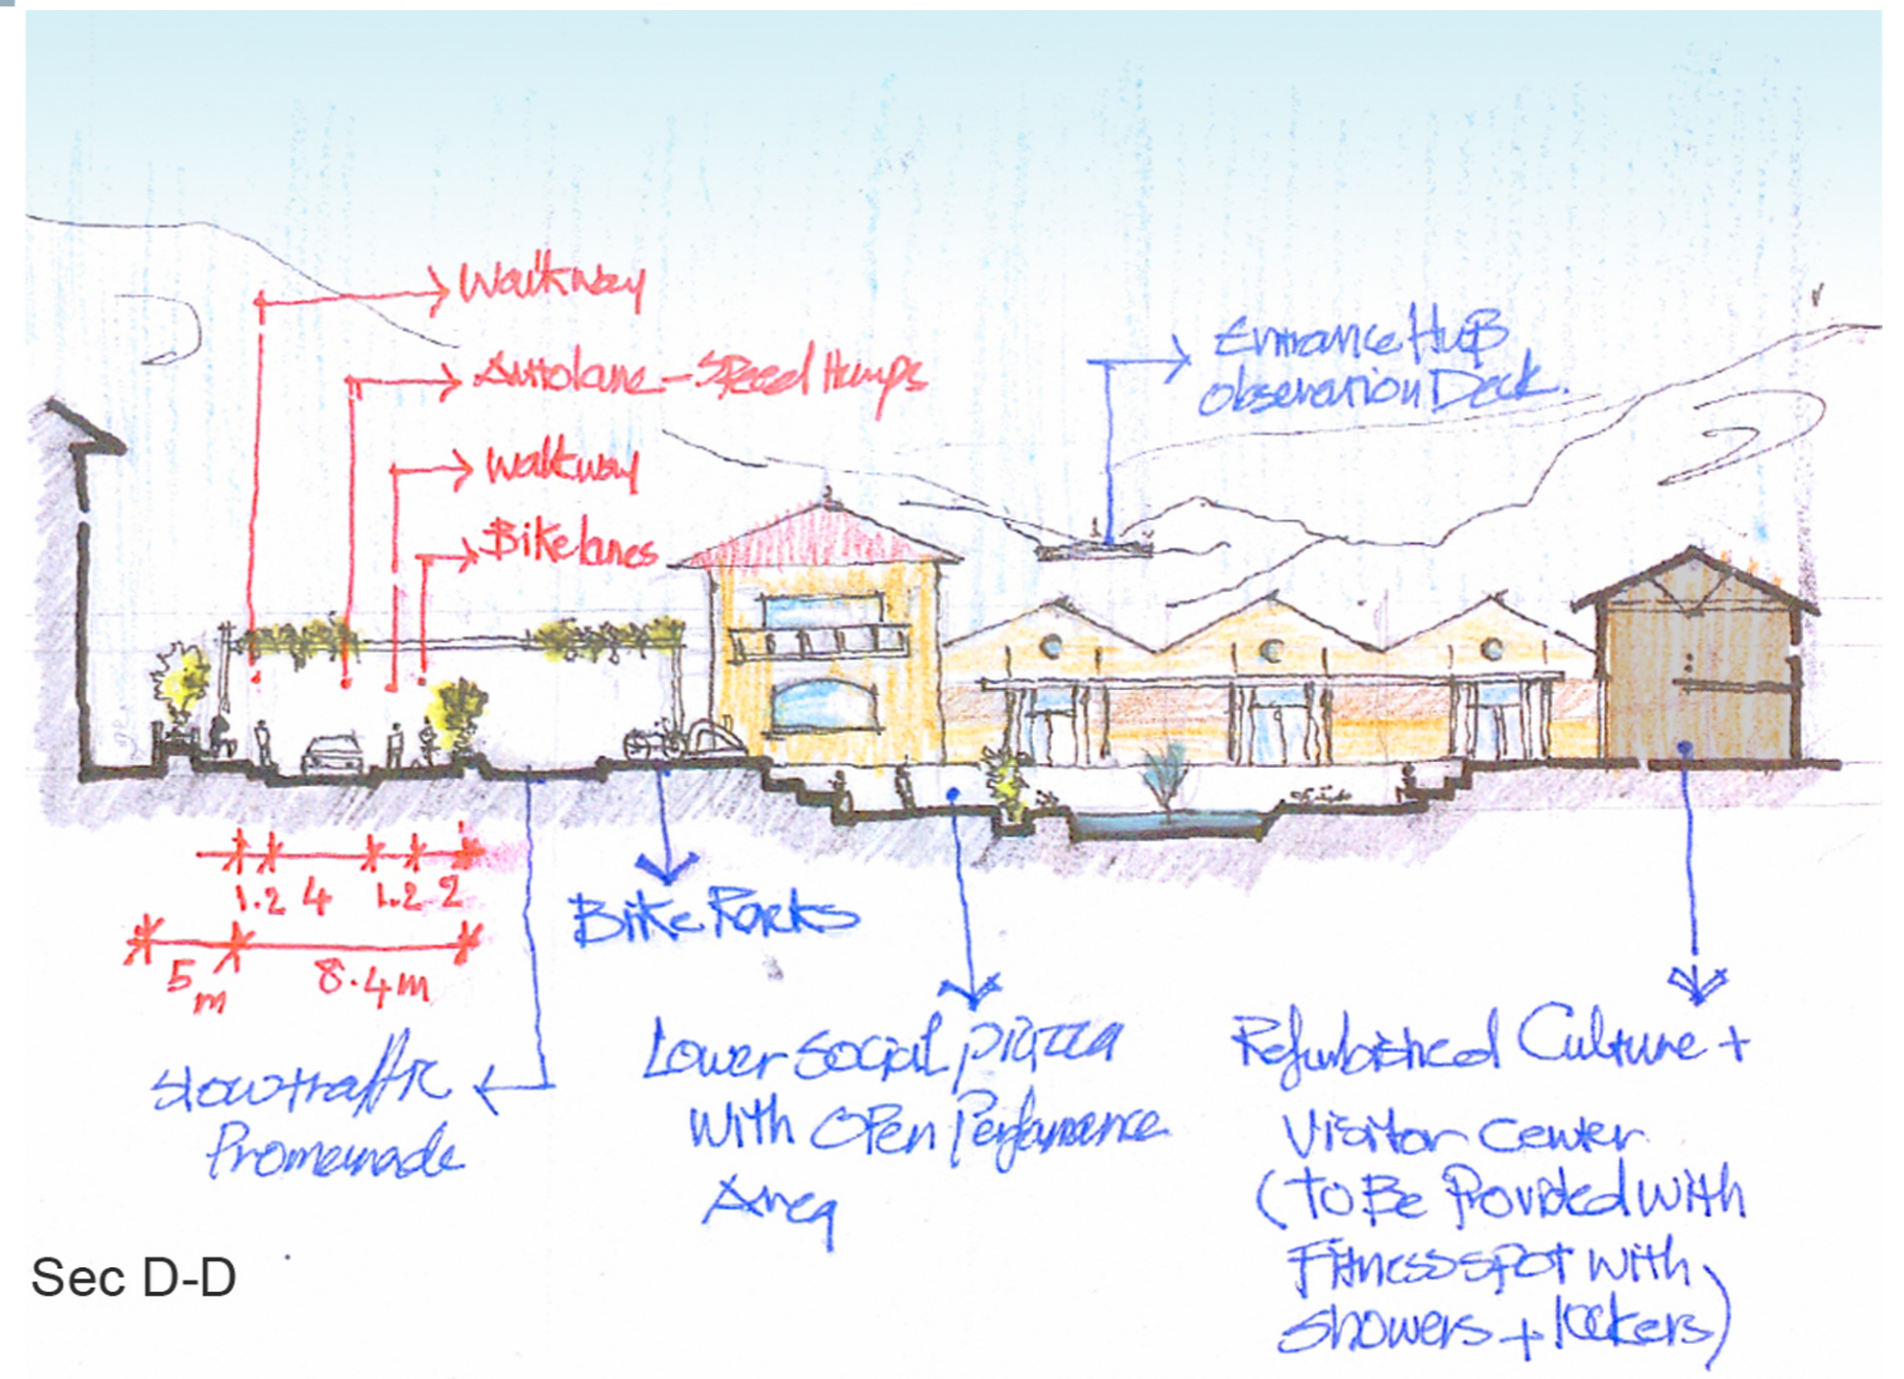 Walkway
Autolane - Speed Humps
Walkway
Bikelanes
Entrance Hub
Observation Deck.
1.2 4 1.2 2
5m 8.4m
Bike Racks
Slow traffic
Promenade
Lower Social Piazza
With Open Performance
Area
Refurbished Culture +
Visitor Center
(To Be Provided With
Fitness spot with
showers + lockers)
Sec D-D